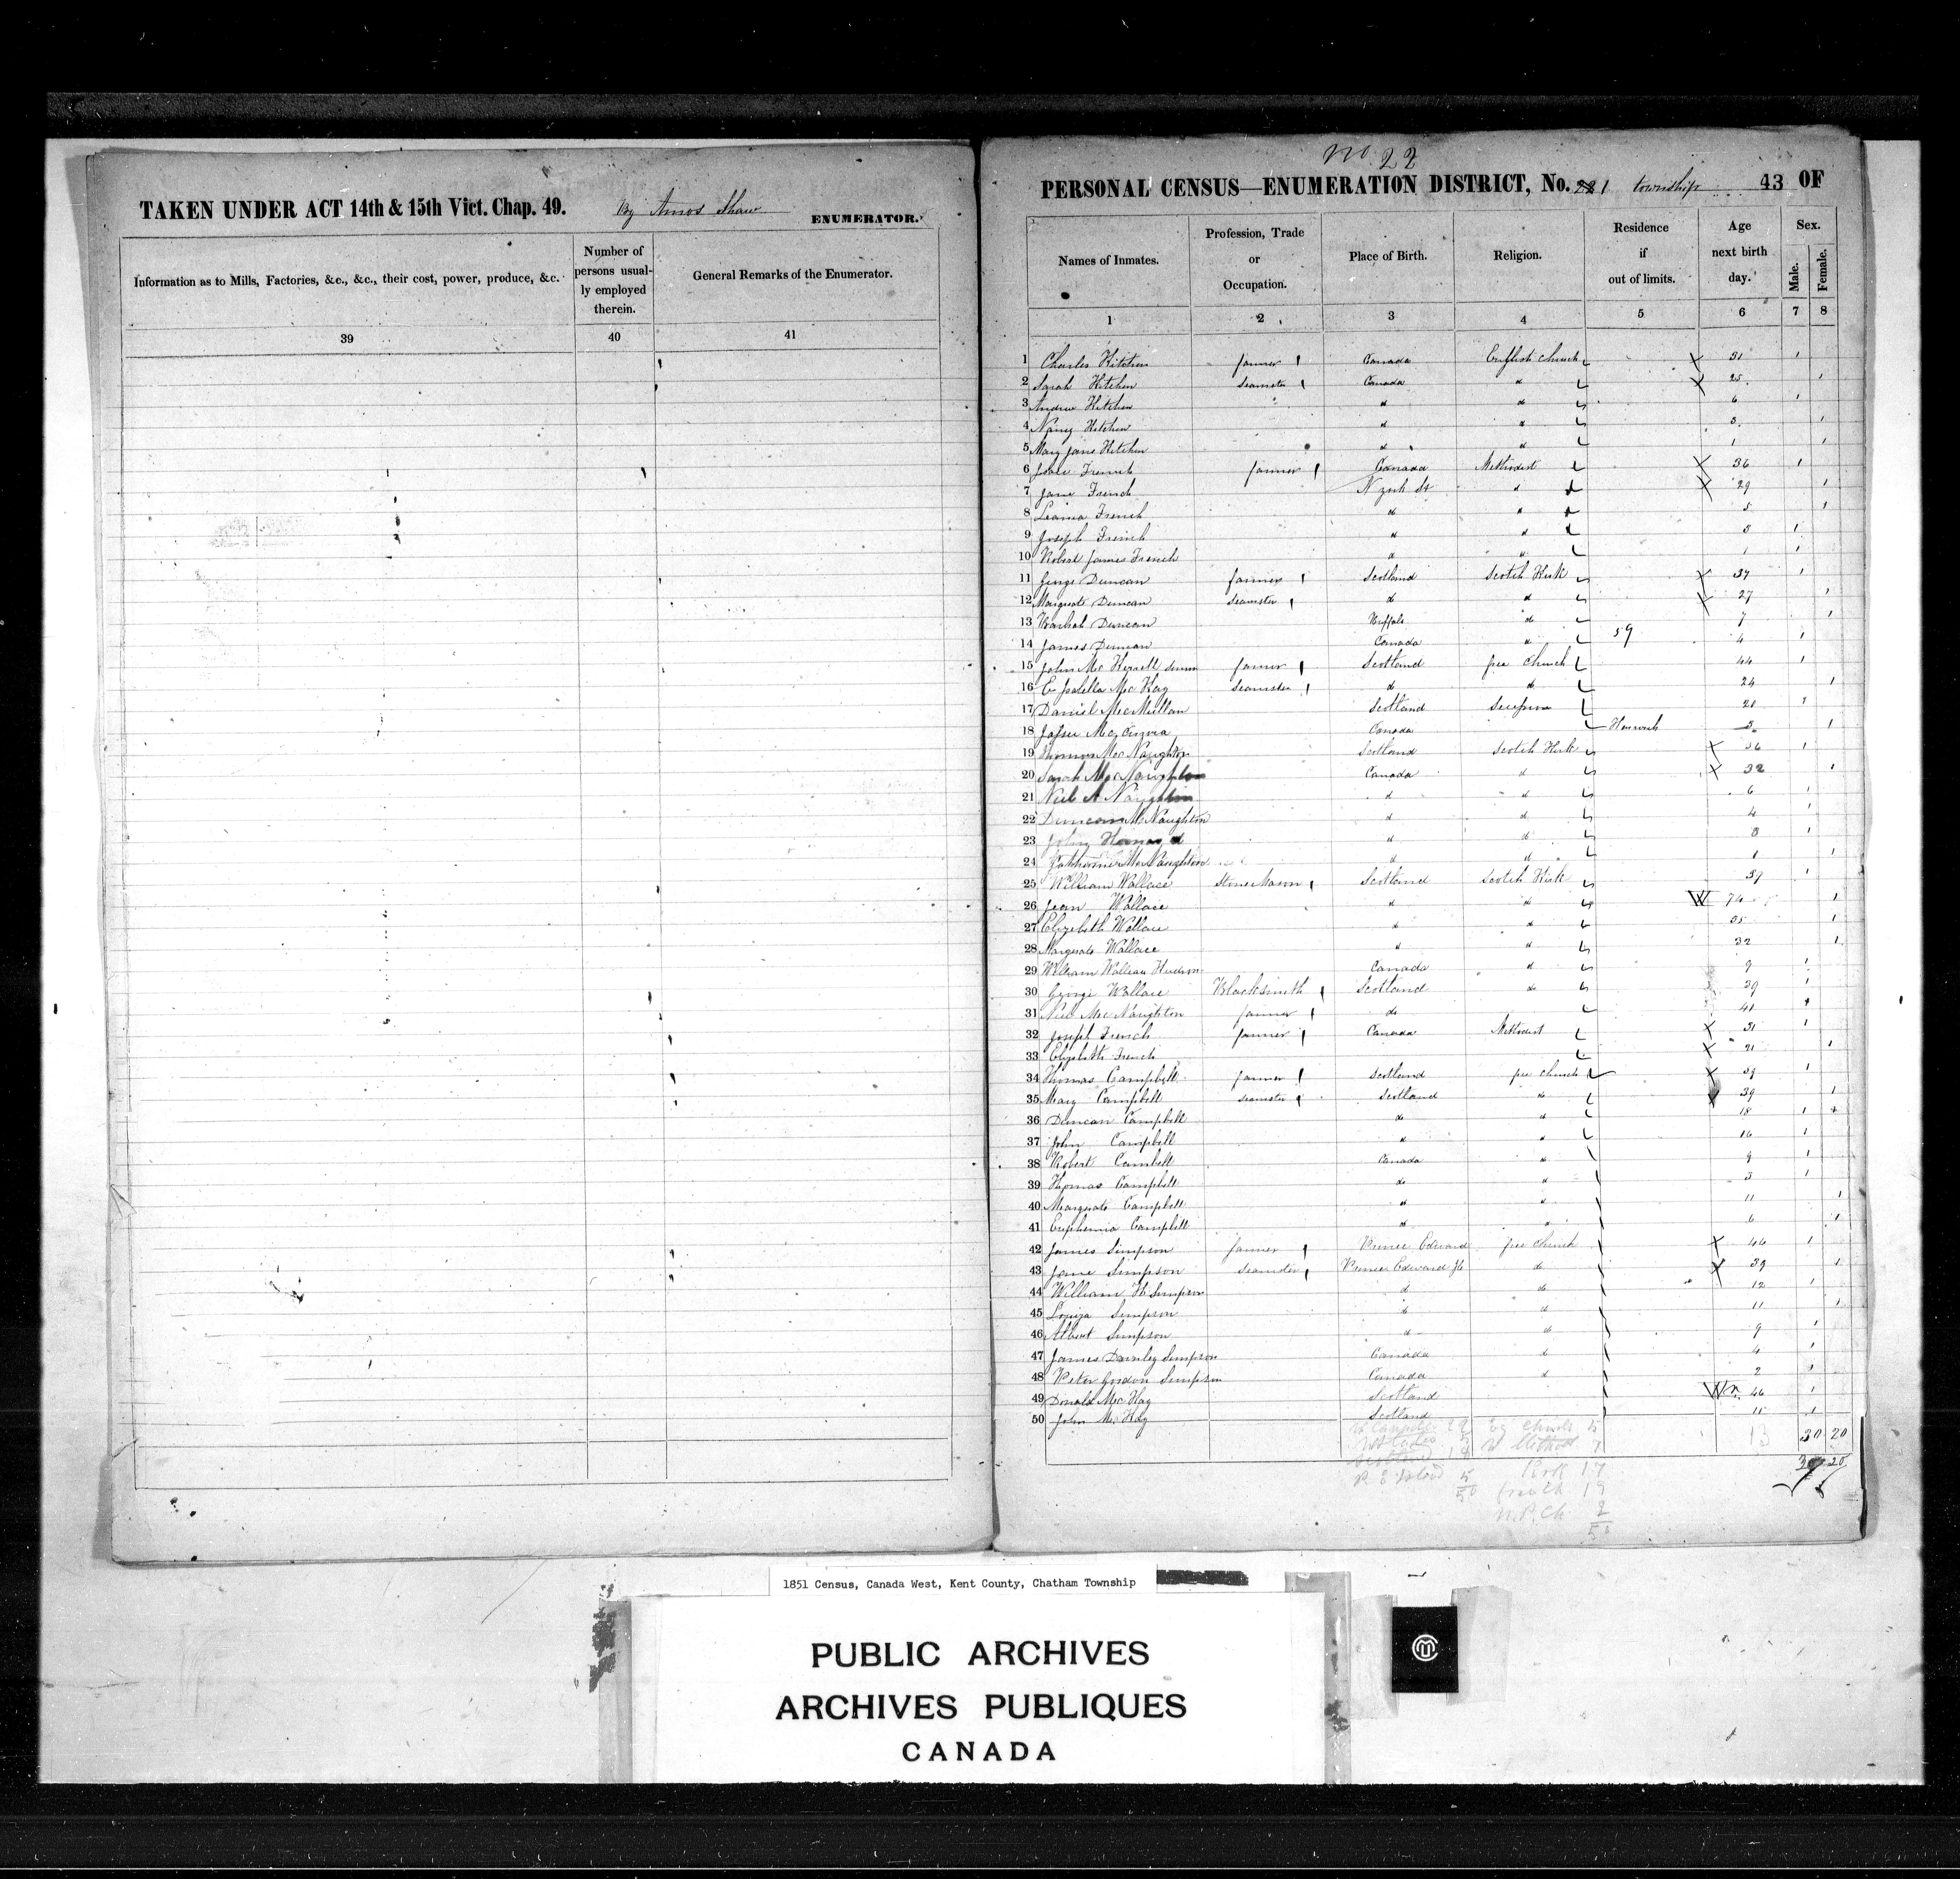 TAKEN UNDER ACT 14th & 15th Vict. Chap. 49. By Amos Shaw ENUMERATOR.
Information as to Mills, Factories, &c., &c., their cost, power, produce, &c.
Number of persons usually employed therein.
General Remarks of the Enumerator.
39 40 41
No 22
PERSONAL CENSUS—ENUMERATION DISTRICT, No. 1 township 43 OF
Names of Inmates.
Profession, Trade or Occupation.
Place of Birth.
Religion.
Residence if out of limits.
Age next birth day.
Sex.
Male. Female.
1 2 3 4 5 6 7 8
1 Charles Kitchen farmer Canada English church 31 1
2 Sarah Kitchen Seamster Canada d 25 1
3 Andrew Kitchen d d 6 1
4 Nancy Kitchen d d 3 1
5 Mary Jane Kitchen d d 1 1
6 French farmer Canada Methodist 36 1
7 Jane French N York St d 29 1
8 French d d 5 1
9 Joseph French d d 3 1
10 Robert James French d d 1 1
11 George Duncan farmer Scotland Scotch Kirk 37 1
12 Margrate Duncan Seamster d d 27 1
13 Duncan Buffalo d 7 1
14 James Duncan Canada d 59 4 1
15 John Mc farmer Scotland free church 44 1
16 Mc Kay Seamster d d 24 1
17 Daniel McMullan Scotland 21 1
18 Canada Harwich 3 1
19 Thomas Mc Naughton Scotland Scotch Kirk 36 1
20 Sarah Mc Naughton Canada d 32 1
21 Naughton d d 6 1
22 Duncan Mc Naughton d d 4 1
23 John d d 3 1
24 Catherine Mc Naughton d d 1 1
25 William Wallace Stone Mason Scotland Scotch Kirk 39 1
26 Jean Wallace d d W 74 1
27 Elizebeth Wallace d d 35 1
28 Margrate Wallace d d 32 1
29 William Wallace Canada d 9 1
30 George Wallace Blacksmith Scotland do 29 1
31 Mc Naughton farmer do 41 1
32 Joseph French farmer Canada Methodist 31 1
33 Elizebeth French 21 1
34 Thomas Campbell farmer Scotland free church 1
35 Mary Campbell Seamster Scotland do 39 1
36 Duncan Campbell do d 18 1
37 John Campbell d d 16 1
38 Robert Cambell Canada d 9 1
39 Thomas Campbell do d 3 1
40 Margrate Campbell d d 11 1
41 Euphemia Campbell d d 6 1
42 James Simpson farmer Prince Edward free church 46 1
43 Jane Simpson Seamster Prince Edward do 39 1
44 William H Simpson d do 12 1
45 Simpson d d 11 1
46 Albert Simpson d do 9 1
47 James Simpson Canada d 4 1
48 Peter Gordon Simpson Canada d 2 1
49 Donald Mc Kay Scotland 46 1
50 John Mc Kay Scotland 11 1
13 30 20
Kirk 17
1851 Census, Canada West, Kent County, Chatham Township
PUBLIC ARCHIVES
ARCHIVES PUBLIQUES
CANADA